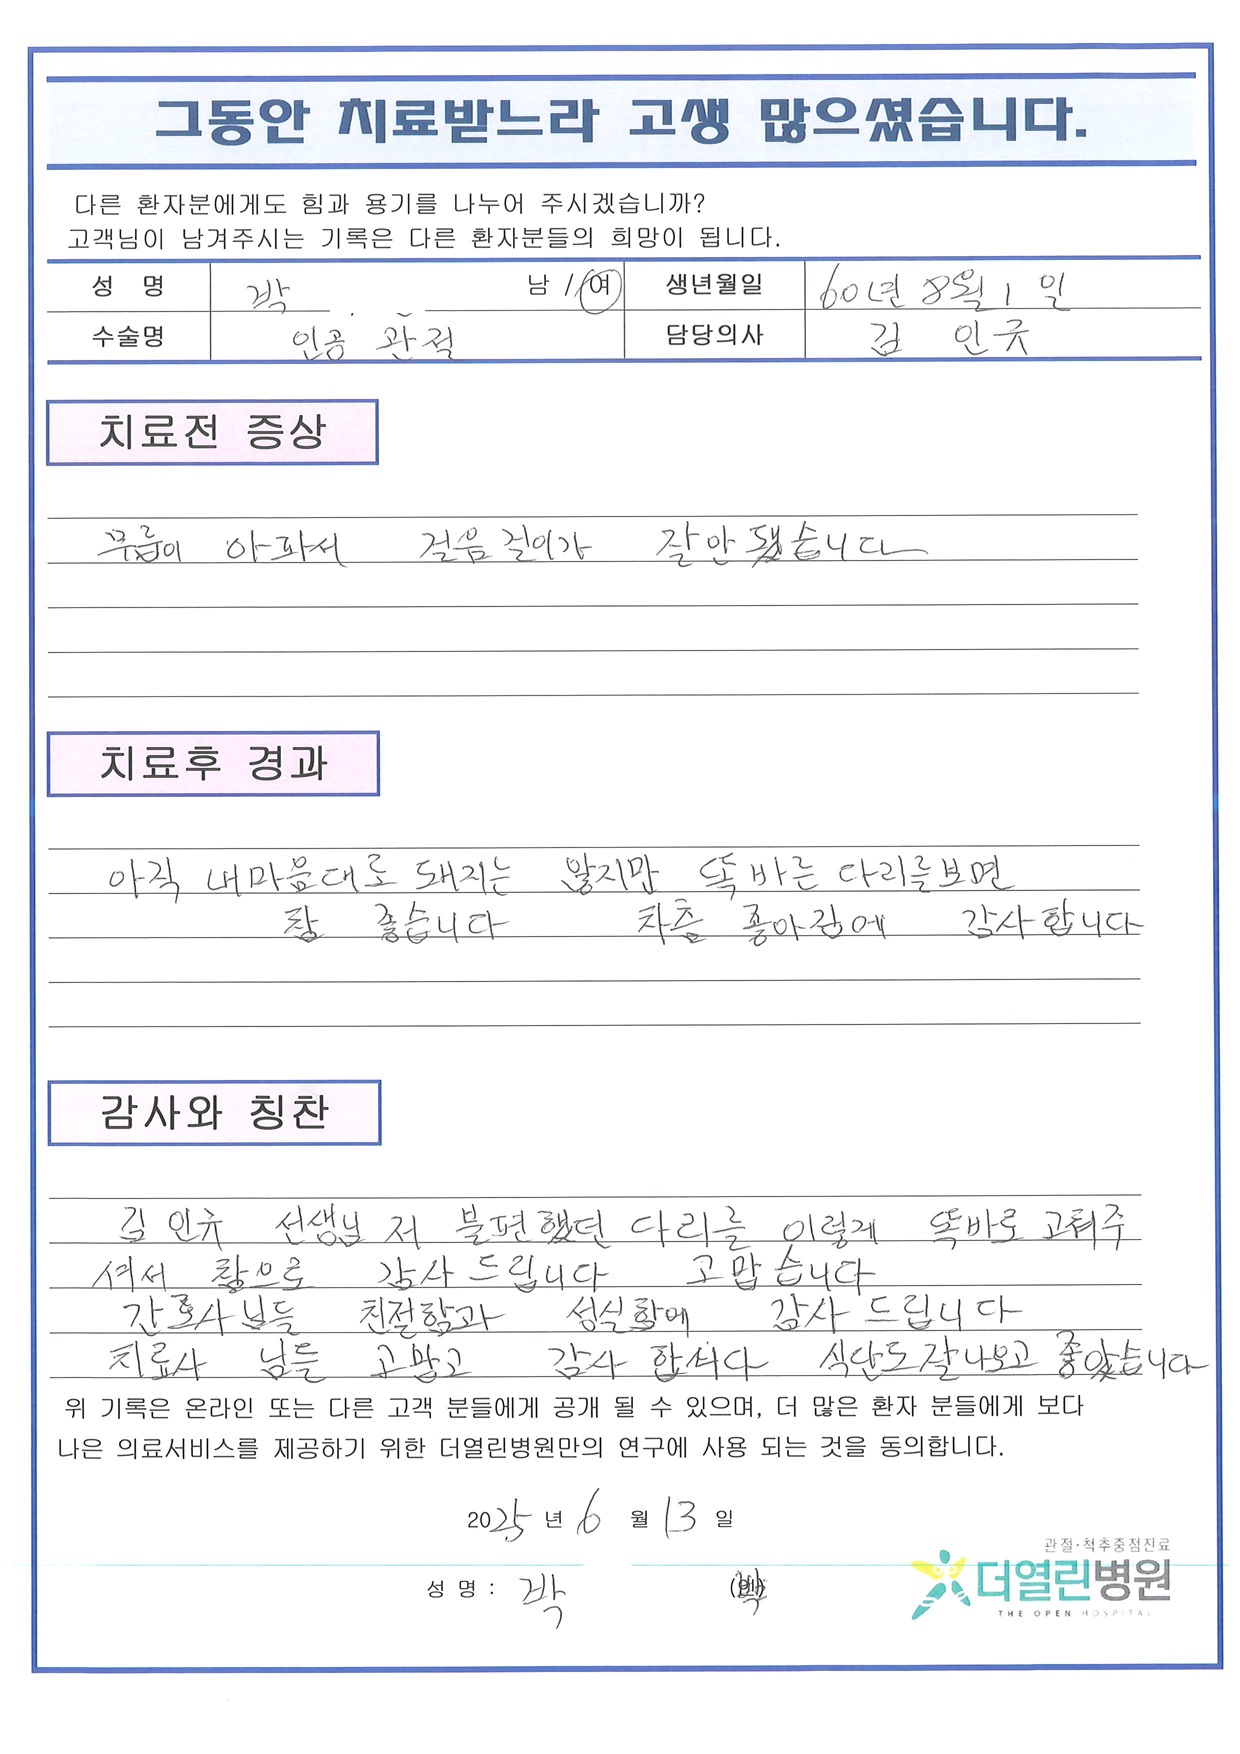 그동안 치료받느라 고생 많으셨습니다.
다른 환자분에게도 힘과 용기를 나누어 주시겠습니까?
고객님이 남겨주시는 기록은 다른 환자분들의 희망이 됩니다.
성 명 박 남 / 여 생년월일 60년 8월 1 일
수술명 인공 관절 담당의사 김 인규
치료전 증상
무릎이 아파서 걸음걸이가 잘안됐습니다
치료후 경과
아직 내마음대로 돼지는 않지만 똑바른 다리를보면
참 좋습니다 차츰 좋아짐에 감사합니다
감사와 칭찬
김인규 선생님 저 불편했던 다리를 이렇게 똑바로 고쳐주
셔서 참으로 감사드립니다 고맙습니다
간호사님들 친절함과 성실함에 감사드립니다
치료사 님들 고맙고 감사 합니다 식단도잘나오고 좋았습니다
위 기록은 온라인 또는 다른 고객 분들에게 공개 될 수 있으며, 더 많은 환자 분들에게 보다
나은 의료서비스를 제공하기 위한 더열린병원만의 연구에 사용 되는 것을 동의합니다.
2025 년 6 월 13 일
성 명 : 박
관절·척추중점진료
더열린병원
THE OPEN HOSPITAL